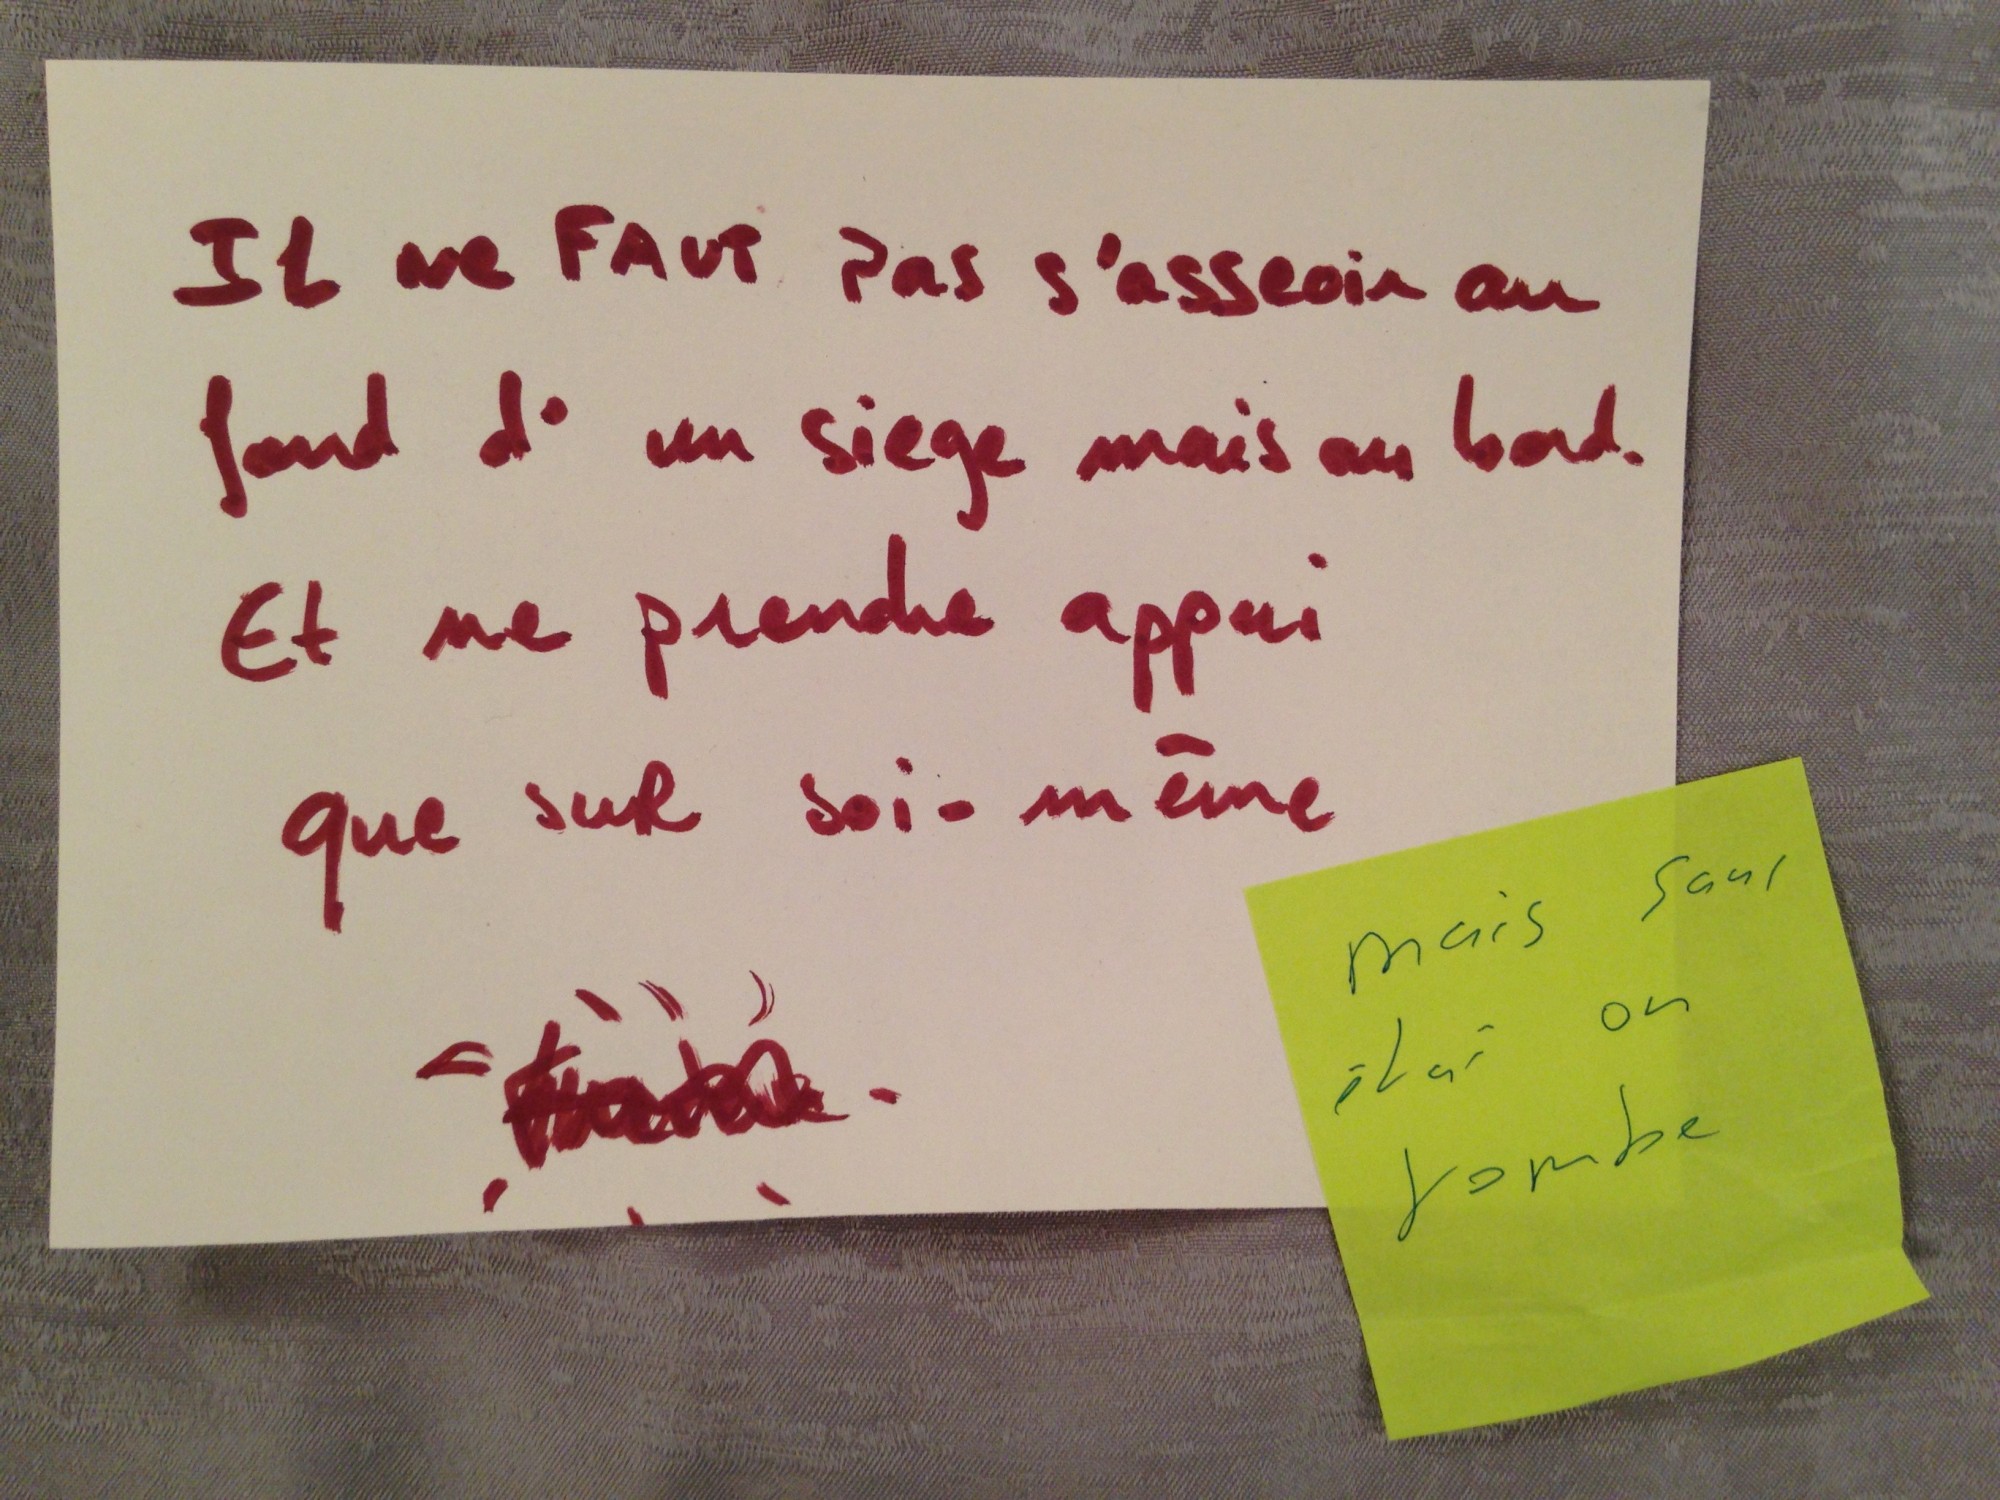 Il ne FAUT pas s'asseoir au
fond d'un siege mais au bord.
Et ne prendre appui
que sur soi-même
mais sans
étai on
tombe